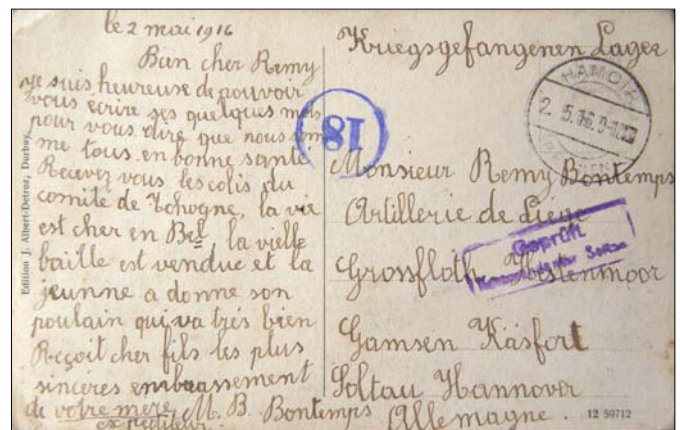 le 2 mai 1916
Bien cher Remy
je suis heureuse de pouvoir
vous ecrire ses quelques mots
pour vous dire que nous som
me tous en bonne santé
Recevez vous les colis du
comité de Tohogne, la vie
est cher en Bel, la vielle
baille est vendue et la
jeunne a donne son
poulain qui va très bien
Reçoit cher fils les plus
sincères embrassement
de votre mere, M. B. Bontemps
expediteur
Edition J. Albert-Detroz, Durbuy
18
Kriegsgefangenen Lager
HAMOIR
2. 5.16.9-
Monsieur Remy Bontemps
Artillerie de Liège
Geprüft
Soltau
Grossfloth Hestenmoor
Gamsen Käsfort
Soltau Hannover
Allemagne.
12 59712